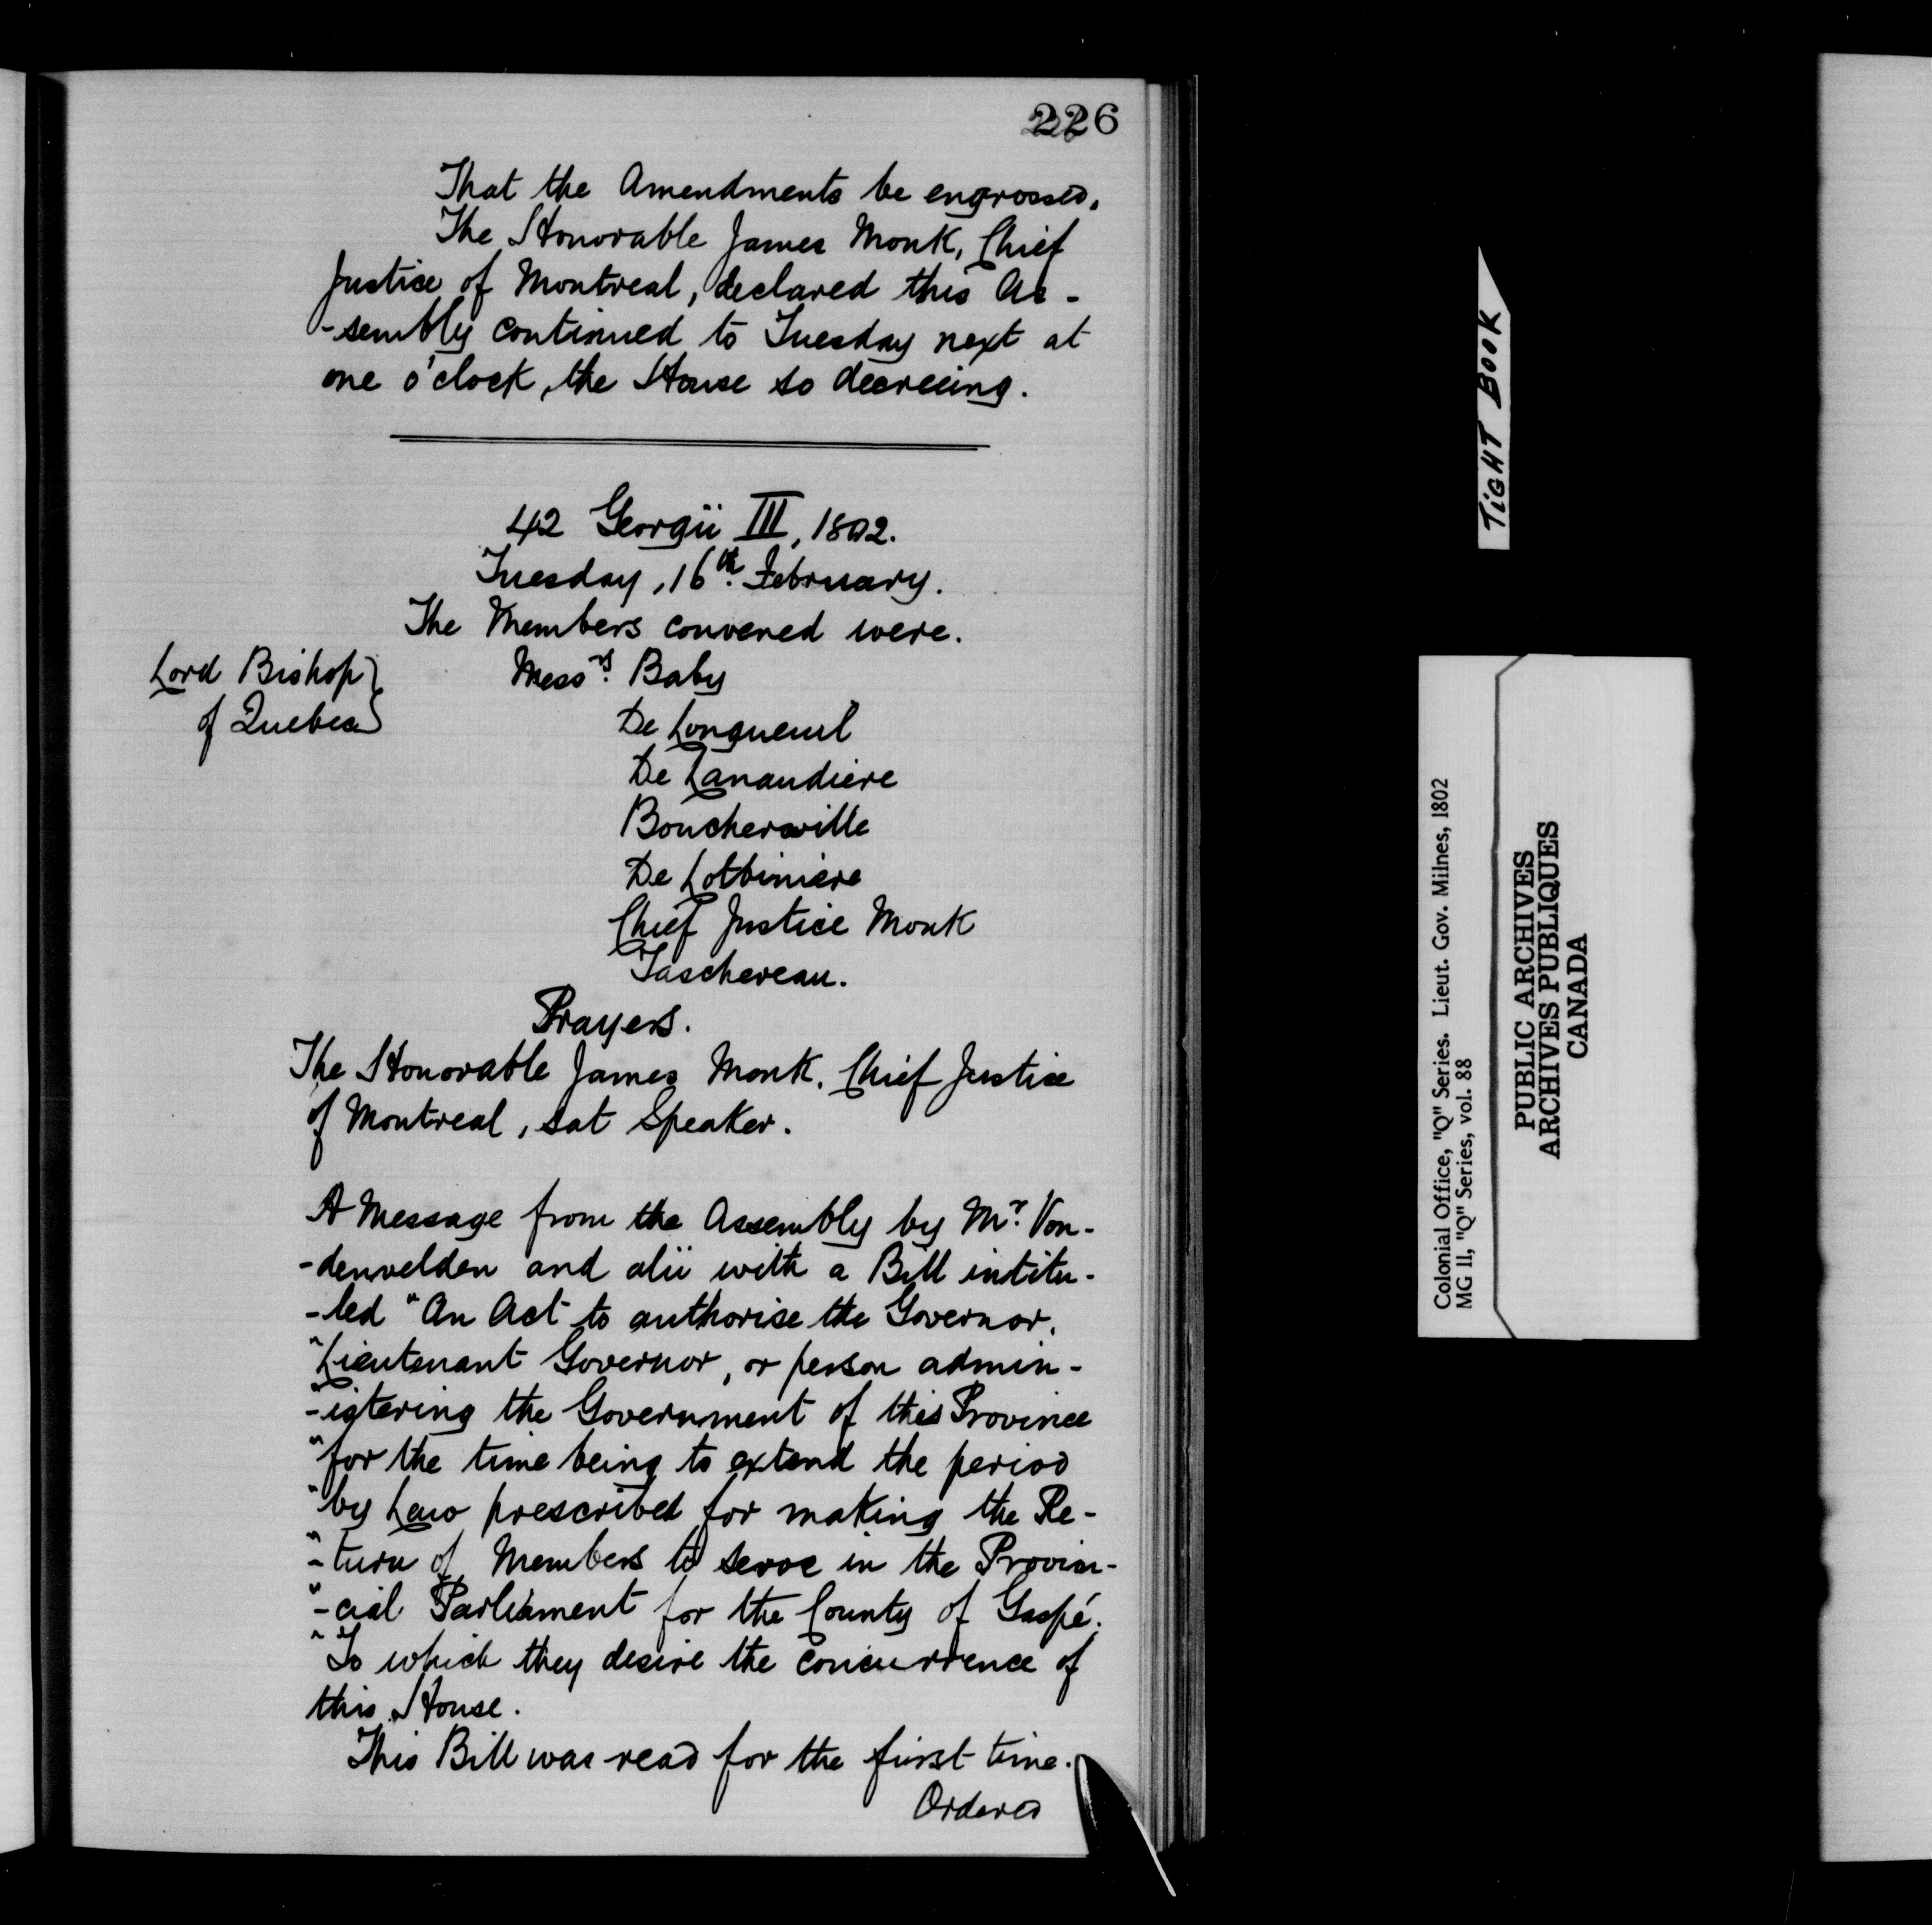 226
That the Amendments be engrossed.
The Honorable James Monk, Chief
Justice of Montreal, declared this As-
-sembly continued to Tuesday next at
one o'clock, the House so decreeing.
42 Georgii III, 1802.
Tuesday, 16th. February.
The Members convened were.
Lord Bishop
of Quebec
Messrs. Baby
De Longueuil
De Lanaudiere
Boucherville
De Lotbiniere
Chief Justice Monk
Taschereau.
Prayers.
The Honorable James Monk, Chief Justice
of Montreal, sat Speaker.
A Message from the Assembly by Mr. Von-
-denvelden and alii with a Bill intitu-
-led "An Act to authorise the Governor,
"Lieutenant Governor, or person admin-
"-istering the Government of this Province
"for the time being to extend the period
"by Law prescribed for making the Re-
"-turn of Members to serve in the Provin-
"-cial Parliament for the County of Gaspé.
"To which they desire the concurrence of
this House.
This Bill was read for the first time.
Ordered
TIGHT BOOK
Colonial Office, "Q" Series. Lieut. Gov. Milnes, 1802
MG 11, "Q" Series, vol. 88
PUBLIC ARCHIVES
ARCHIVES PUBLIQUES
CANADA